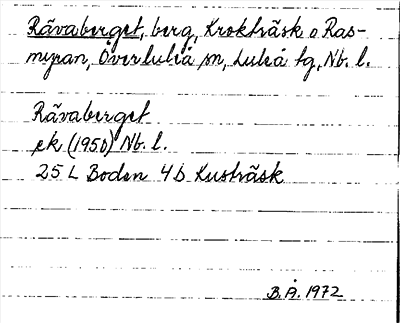 Rävaberget, berg, Kroktråsk o Ras-
myran, Överluleå sn, Luleå tg, Nb. l.
Rävaberget
ek (1950) Nb. l.
25 L Boden 4 b Kusträsk
B. Å. 1972